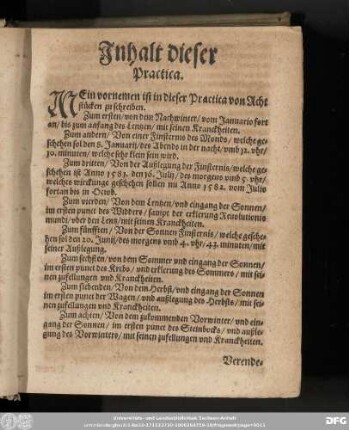 Jnhalt dieser
Practica.
MEin vornemen ist in dieser Practica von Acht
stücken zu schreiben.
Zum ersten/ von dem Nachwinter/ vom Januario fort
an/ bis zum anfang des Lentzen/ mit seinen Kranckheiten.
Zum andern/ Von einer Finsternis des Monds/ welche ge-
schehen sol den 8. Januarij/ des Abends in der nacht/ umb 12. uhr/
30. minuten/ welche sehr klein sein wird.
Zum dritten/ Von der Außlegung der Finsternis/ welche ge-
schehen ist Anno 1581. den 16. Julij/ des morgens umb 5. uhr/
welches wirckunge geschehen sollen nu Anno 1582. vom Julio
fortan bis in Octob.
Zum vierden/ Von dem Lentzen/ und eingang der Sonnen/
im ersten punct des Widders/ sampt der erklerung Revolutionis
mundi/ uber den Lentz/ mit seinen Kranckheiten.
Zum fünfften/ Von der Sonnen Finsternis/ welche gesche-
hen sol den 20. Junij/ des morgens umb 4. uhr/ 43. minuten/ mit
seiner Außlegung.
Zum sechsten/ von dem Sommer und eingang der Sonnen/
im ersten punct des Krebs/ und erklerung des Sommers/ mit sei-
nen zufellungen und Kranckheiten.
Zum siebenden/ Von dem Herbst/ und eingang der Sonnen
im ersten punct der Wagen/ und außlegung des Herbsts/ mit sei-
nen zufellungen und Kranckheiten.
Zum achten/ Von dem zukommenden Vorwinter/ und ein-
gang der Sonnen/ im ersten punct des Steinbocks/ und außle-
gung des Vorwinters/ mit seinen zufellungen und Kranckheiten.
Verende-
Universitäts- und Landesbibliothek Sachsen-Anhalt